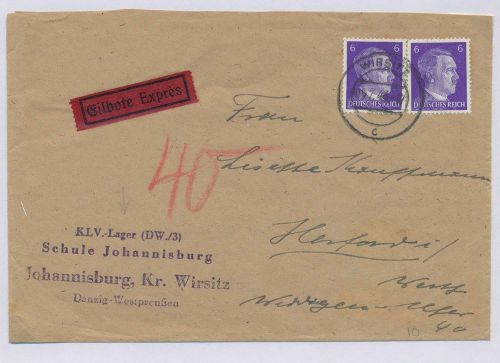 6 6
WIRSITZ
c
DEUTSCHES REICH DEUTSCHES REICH
Eilbote Exprès
Frau
Lisette Kauffmann
40
KLV.-Lager (DW./3)
Schule Johannisburg
Johannisburg, Kr. Wirsitz
Danzig-Westpreußen
Herford i/
Westf
40
10